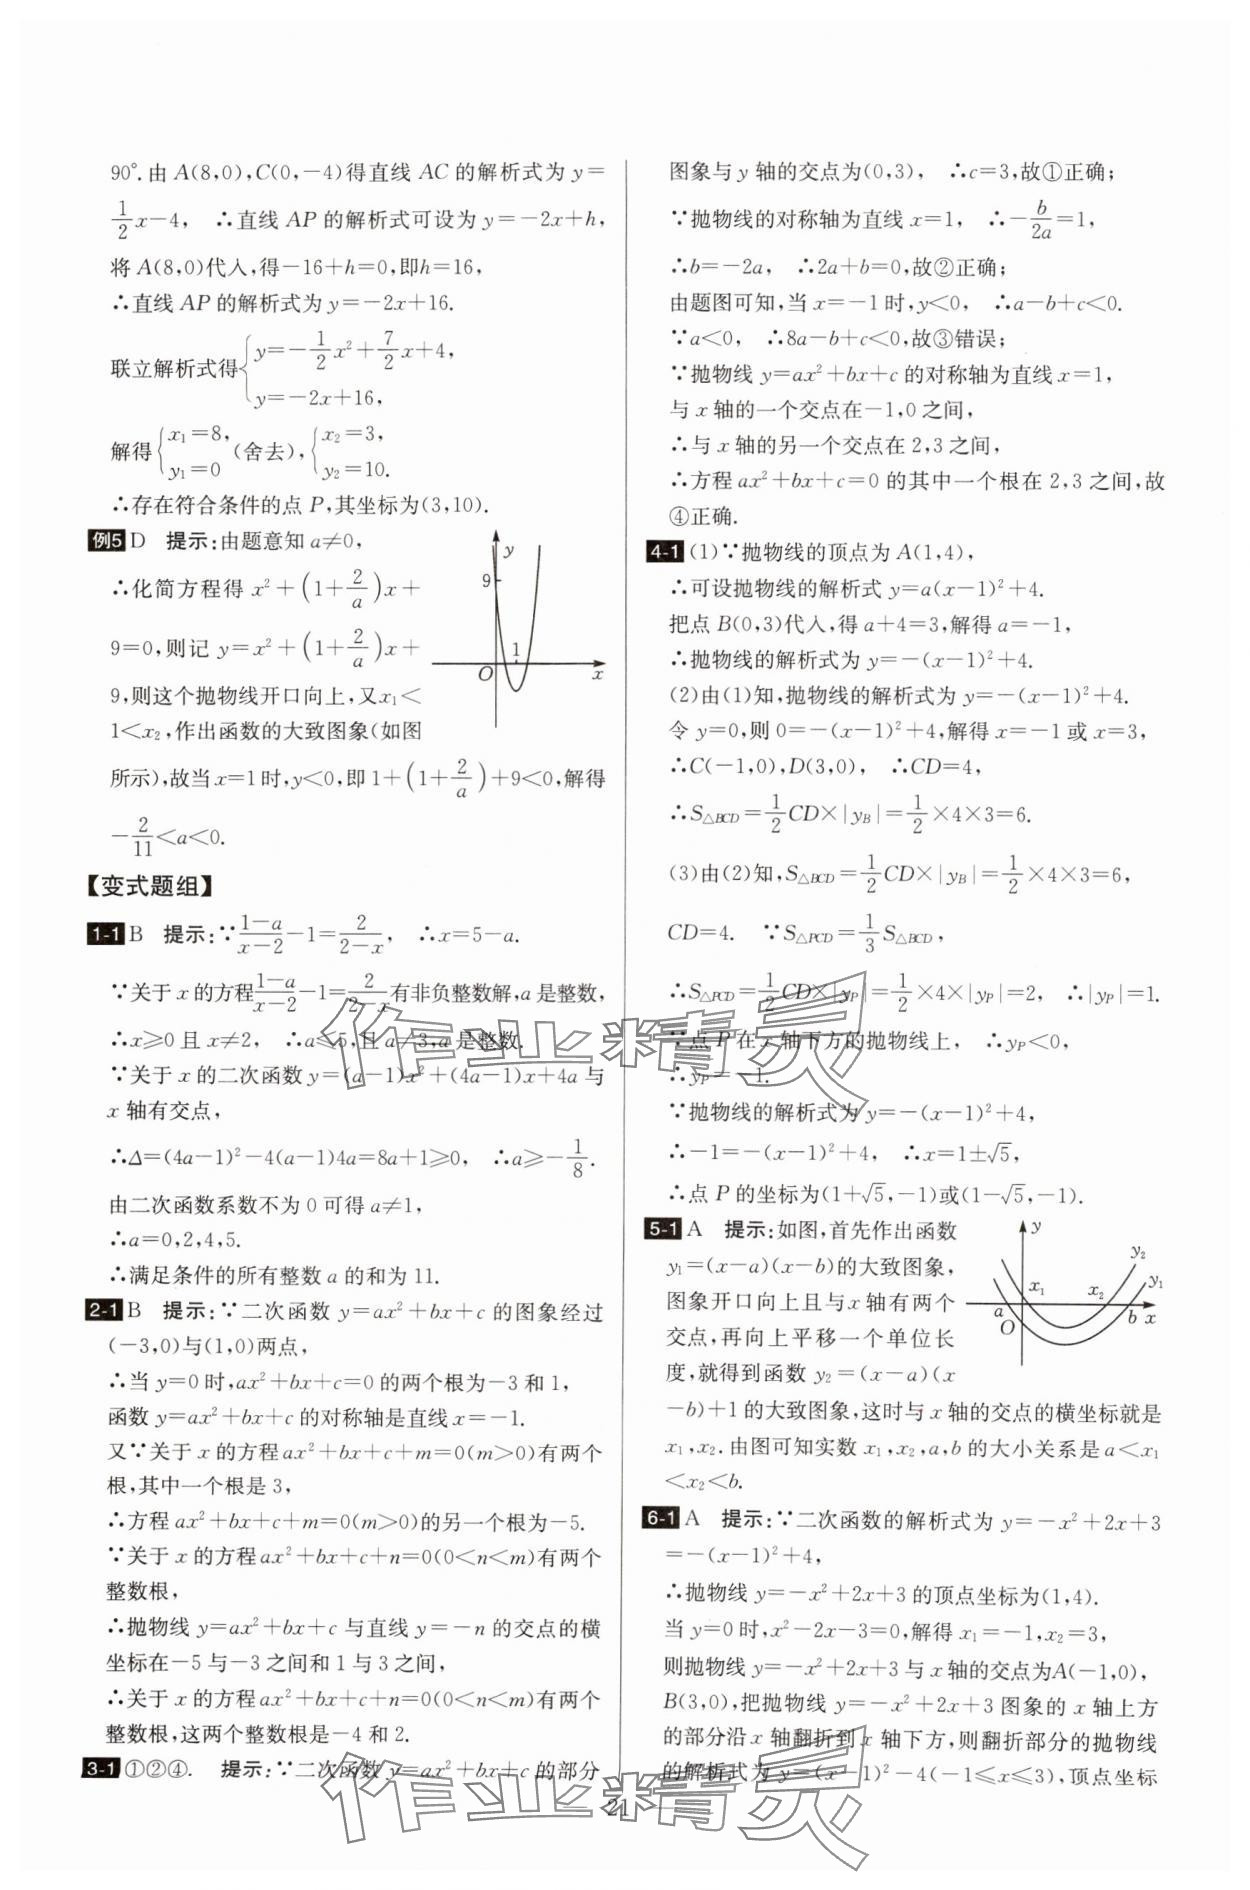 90°.由 A(8,0),C(0,-4)得直线 AC 的解析式为 y=
1/2x-4, ∴直线 AP 的解析式可设为 y=-2x+h,
将 A(8,0)代入,得-16+h=0,即h=16,
∴直线 AP 的解析式为 y=-2x+16.
联立解析式得{y=-1/2x²+7/2x+4,
y=-2x+16,
解得{x₁=8, y₁=0(舍去),{x₂=3, y₂=10.
∴存在符合条件的点 P,其坐标为(3,10).
例5 D 提示:由题意知 a≠0,
∴化简方程得 x²+(1+2/a)x+
9=0,则记 y=x²+(1+2/a)x+
9,则这个抛物线开口向上,又x₁<
1<x₂,作出函数的大致图象(如图
所示),故当 x=1时,y<0,即 1+(1+2/a)+9<0,解得
-2/11<a<0.
y
9
1
O
x
【变式题组】
1-1 B 提示:∵(1-a)/(x-2)-1=2/(2-x), ∴x=5-a.
∵关于 x 的方程(1-a)/(x-2)-1=2/(2-x)有非负整数解,a 是整数,
∴x≥0 且 x≠2, ∴a≤5,且 a≠3,a 是整数.
∵关于 x 的二次函数 y=(a-1)x²+(4a-1)x+4a 与
x 轴有交点,
∴Δ=(4a-1)²-4(a-1)4a=8a+1≥0, ∴a≥-1/8.
由二次函数系数不为 0 可得 a≠1,
∴a=0,2,4,5.
∴满足条件的所有整数 a 的和为 11.
2-1 B 提示:∵二次函数 y=ax²+bx+c 的图象经过
(-3,0)与(1,0)两点,
∴当 y=0 时,ax²+bx+c=0 的两个根为-3 和 1,
函数 y=ax²+bx+c 的对称轴是直线 x=-1.
又∵关于 x 的方程 ax²+bx+c+m=0(m>0)有两个
根,其中一个根是 3,
∴方程 ax²+bx+c+m=0(m>0)的另一个根为-5.
∵关于 x 的方程 ax²+bx+c+n=0(0<n<m)有两个
整数根,
∴抛物线 y=ax²+bx+c 与直线 y=-n 的交点的横
坐标在-5 与-3 之间和 1 与 3 之间,
∴关于 x 的方程 ax²+bx+c+n=0(0<n<m)有两个
整数根,这两个整数根是-4 和 2.
3-1 ①②④. 提示:∵二次函数 y=ax²+bx+c 的部分
图象与 y 轴的交点为(0,3), ∴c=3,故①正确;
∵抛物线的对称轴为直线 x=1, ∴-b/2a=1,
∴b=-2a, ∴2a+b=0,故②正确;
由题图可知,当 x=-1 时,y<0, ∴a-b+c<0.
∵a<0, ∴8a-b+c<0,故③错误;
∵抛物线 y=ax²+bx+c 的对称轴为直线 x=1,
与 x 轴的一个交点在-1,0 之间,
∴与 x 轴的另一个交点在 2,3 之间,
∴方程 ax²+bx+c=0 的其中一个根在 2,3 之间,故
④正确.
4-1 (1)∵抛物线的顶点为 A(1,4),
∴可设抛物线的解析式 y=a(x-1)²+4.
把点 B(0,3)代入,得 a+4=3,解得 a=-1,
∴抛物线的解析式为 y=-(x-1)²+4.
(2)由(1)知,抛物线的解析式为 y=-(x-1)²+4.
令 y=0,则 0=-(x-1)²+4,解得 x=-1 或 x=3,
∴C(-1,0),D(3,0), ∴CD=4,
∴S△BCD=1/2CD×|yB|=1/2×4×3=6.
(3)由(2)知,S△BCD=1/2CD×|yB|=1/2×4×3=6,
CD=4. ∵S△PCD=1/3S△BCD,
∴S△PCD=1/2CD×|yP|=1/2×4×|yP|=2, ∴|yP|=1.
∵点 P 在 x 轴下方的抛物线上, ∴yP<0,
∴yP=-1.
∵抛物线的解析式为 y=-(x-1)²+4,
∴-1=-(x-1)²+4, ∴x=1±√5,
∴点 P 的坐标为(1+√5,-1)或(1-√5,-1).
5-1 A 提示:如图,首先作出函数
y₁=(x-a)(x-b)的大致图象,
图象开口向上且与 x 轴有两个
交点,再向上平移一个单位长
度,就得到函数 y₂=(x-a)(x
-b)+1 的大致图象,这时与 x 轴的交点的横坐标就是
x₁,x₂.由图可知实数 x₁,x₂,a,b 的大小关系是 a<x₁
<x₂<b.
y
y₂
y₁
x₁
x₂
a
O
b
x
6-1 A 提示:∵二次函数的解析式为 y=-x²+2x+3
=-(x-1)²+4,
∴抛物线 y=-x²+2x+3 的顶点坐标为(1,4).
当 y=0 时,x²-2x-3=0,解得 x₁=-1,x₂=3,
则抛物线 y=-x²+2x+3 与 x 轴的交点为A(-1,0),
B(3,0),把抛物线 y=-x²+2x+3 图象的 x 轴上方
的部分沿 x 轴翻折到 x 轴下方,则翻折部分的抛物线
的解析式为 y=(x-1)²-4(-1≤x≤3),顶点坐标
— 21 —
作业精灵
作业精灵